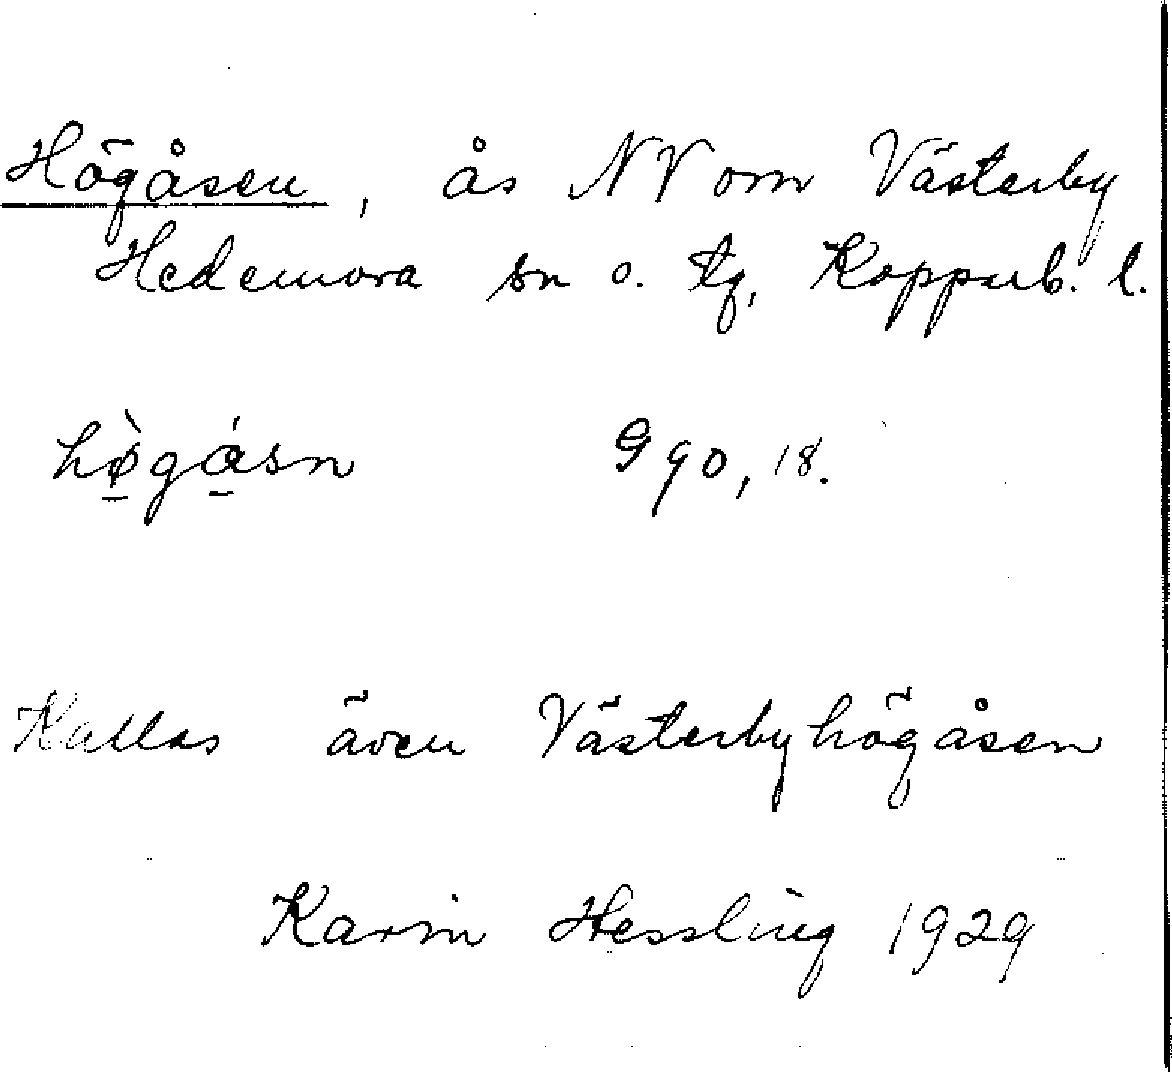 Högåsen, ås NV om Västerby
Hedemora sn o. tg, Kopparb. l.
hø̠̀gά̠sn G 90, 18.
Kallas även Västerbyhögåsen
Karin Hessling 1929